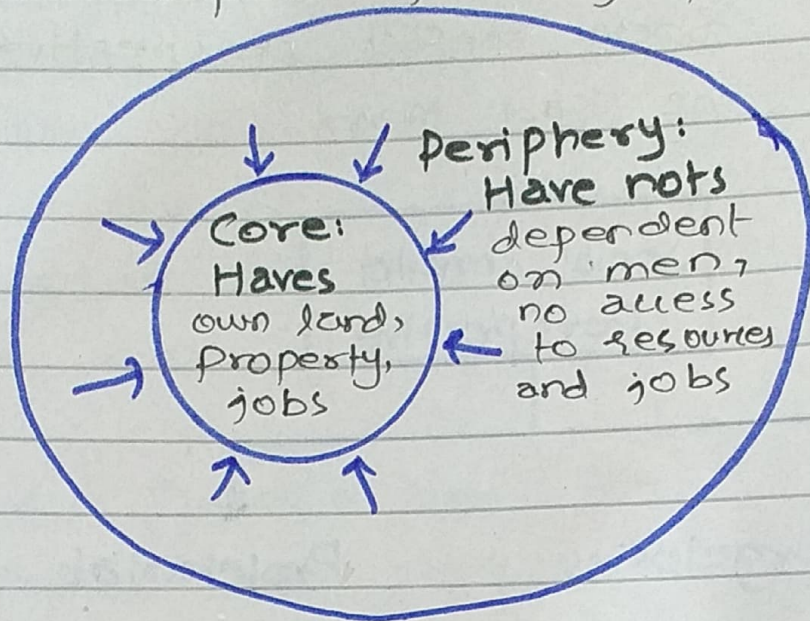 Core:
Haves
own land,
property,
jobs
Periphery:
Have nots
dependent
on men,
no access
to resources
and jobs